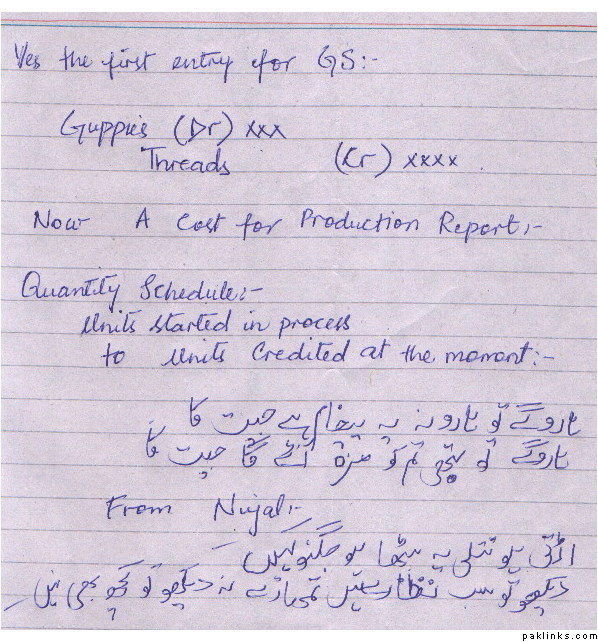 Yes the first entry for GS:-
Guppies (Dr) xxx
Threads (Cr) xxxx
Now A Cost for Production Report:-
Quantity Schedule:-
Units started in process
to Units Credited at the momant:-
ہاروگے تو ہارو نہ یہ پیغام ہے جیت کا
ہاروگے تو تبھی تم کو مزہ آئے گا جیت کا
From Nujal:-
اڑتی ہو تتلی پہ بیٹھا ہو جگنو کہیں
دیکھو تو سب نظارے ہیں تمہارے نہ دیکھو تو کچھ بھی نہیں
paklinks.com